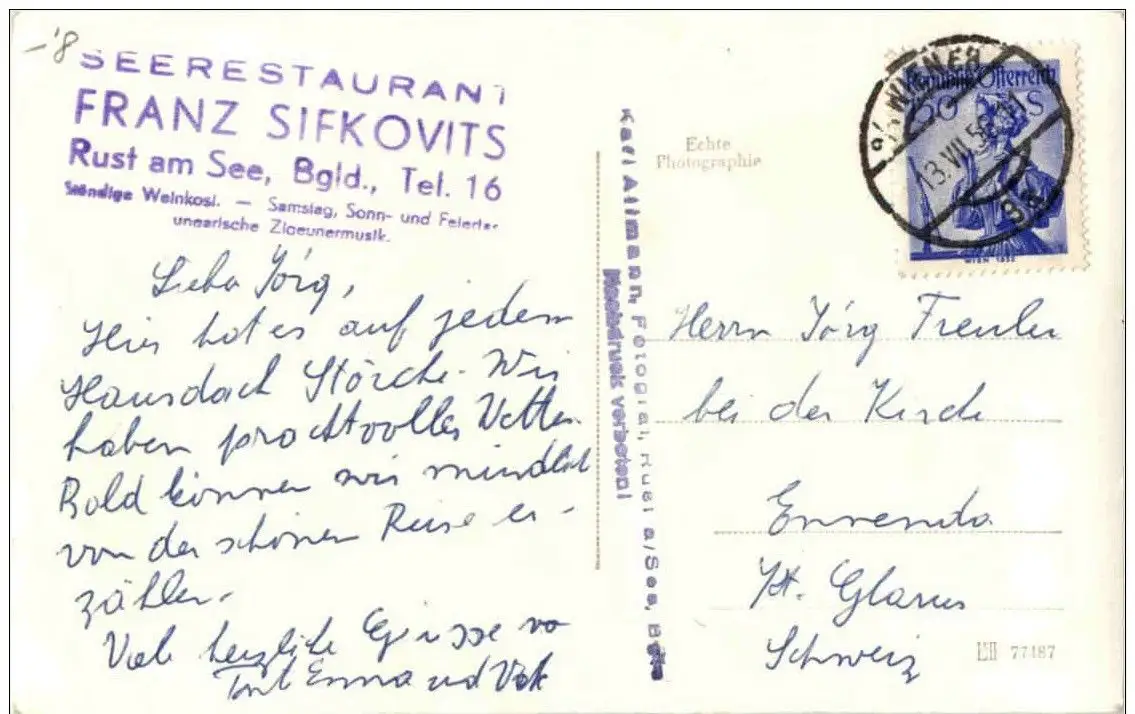 -'8
SEERESTAURANT
FRANZ SIFKOVITS
Rust am See, Bgld., Tel. 16
Ständige Weinkost. — Samstag, Sonn- und Feierta
ungarische Zigeunermusik.
Lieber Jörg,
Hier hat es auf jedem
Hausdach Störche. Wir
haben prachtvolles Wetter.
Bald können wir mündlich
von der schönen Reise er-
zählen.
Viele herzliche Grüsse von
Emma und
Karl Attmann, Fotograf, Rust a/See, Bgld
Nachdruck verboten!
Echte
Photographie
Republik Österreich
S
WIEN
13.VII.56
9a
Herrn Jörg Freuler
bei der Kirche
Ennenda
Kt. Glarus
Schweiz
77487